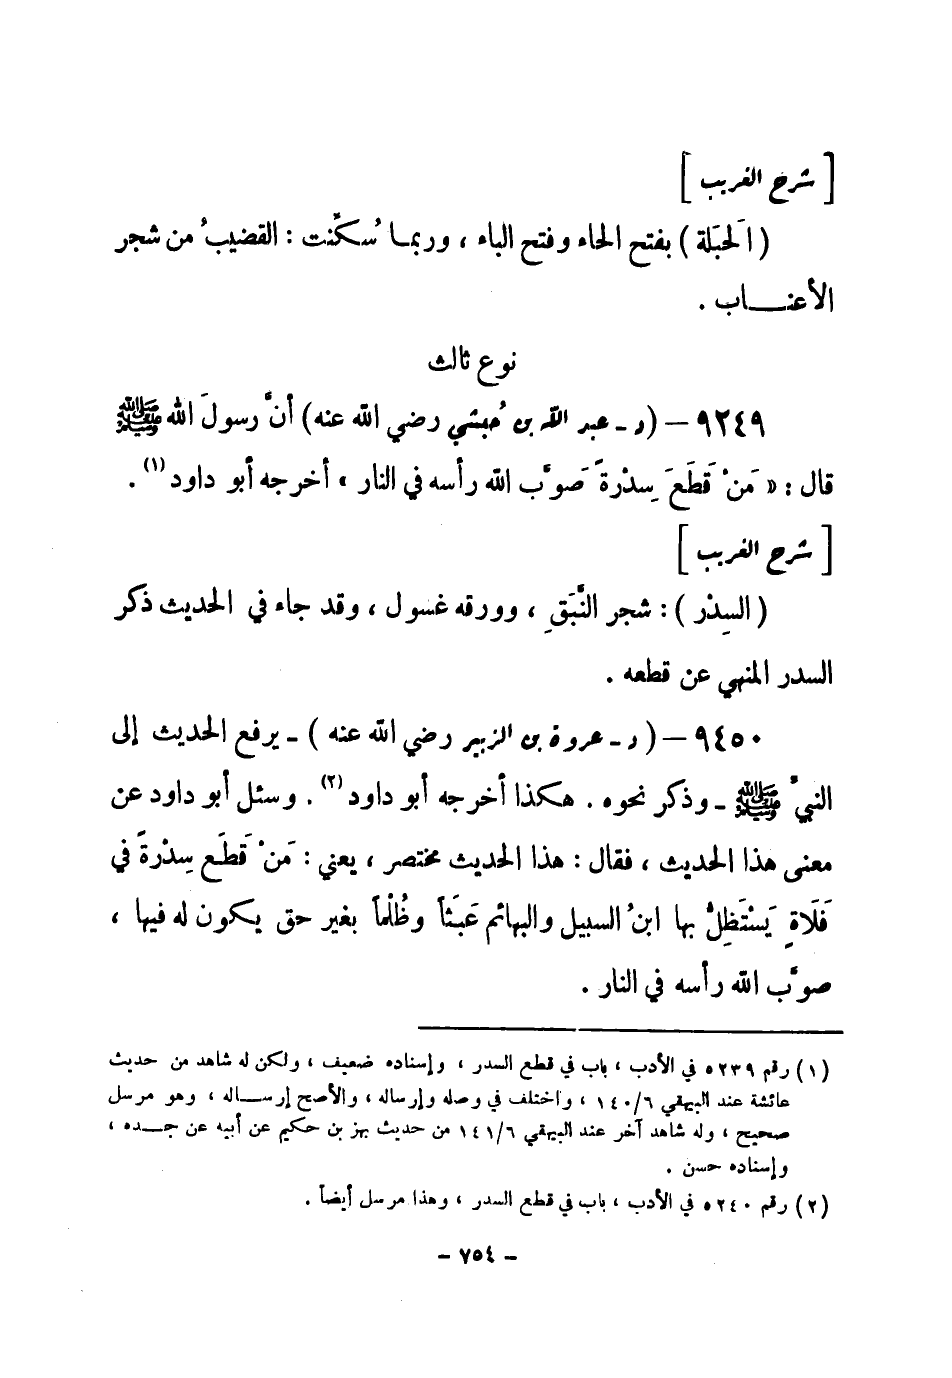 [ شرح الغريب ]
( الحَبَلة ) بفتح الحاء وفتح الباء ، وربمـا سُكِّنت : القضيبُ من شجر
الأعنـــاب .
نوع ثالث
٩٢٤٩ – (د ـ عبد الله بن حُبشي رضي الله عنه) أنَّ رسولَ الله ﷺ
قال : « مَنْ قَطَعَ سِدْرةً صَوَّب الله رأسه في النار » أخرجه أبو داود (١) .
[ شرح الغريب ]
( السِدْر ) : شجر النَّبَقِ ، وورقه غسول ، وقد جاء في الحديث ذكر
السدر المنهي عن قطعه .
٩٤٥٠ – ( د ـ عروة بن الزبير رضي الله عنه ) ـ يرفع الحديث إلى
النبيِّ ﷺ ـ وذكر نحوه . هكذا أخرجه أبو داود (٢) . وسئل أبو داود عن
معنى هذا الحديث ، فقال : هذا الحديث مختصر ، يعني : مَنْ قَطَع سِدْرةً في
فَلَاةٍ يَسْتَظِلُّ بها ابنُ السبيل والبهائم عَبَثاً وظُلْماً بغير حق يكون له فيها ،
صوَّب الله رأسه في النار .
(١) رقم ٥٢٣٩ في الأدب ، باب في قطع السدر ، وإسناده ضعيف ، ولكن له شاهد من حديث
عائشة عند البيهقي ١٤٠/٦ ، واختلف في وصله وإرساله ، والأصح إرســاله ، وهو مرسل
صحيح ، وله شاهد آخر عند البيهقي ١٤١/٦ من حديث بهز بن حكيم عن أبيه عن جـــده ،
وإسناده حسن .
(٢) رقم ٥٢٤٠ في الأدب ، باب في قطع السدر ، وهذا مرسل أيضاً .
– ٧٥٤ –